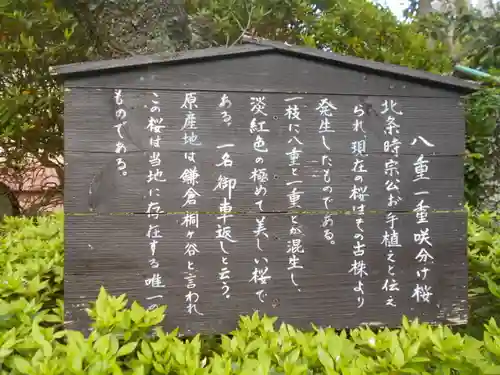 八重一重咲分け桜
北条時宗公お手植えと伝え
られ、現在の桜はもの古株より
発生したものである。
一枝に八重と一重が混生し、
淡紅色の極めて美しい桜で
ある。一名御車返しと云う。
原産地は鎌倉桐ヶ谷と言われ
この桜は当地に存在する唯一の
ものである。